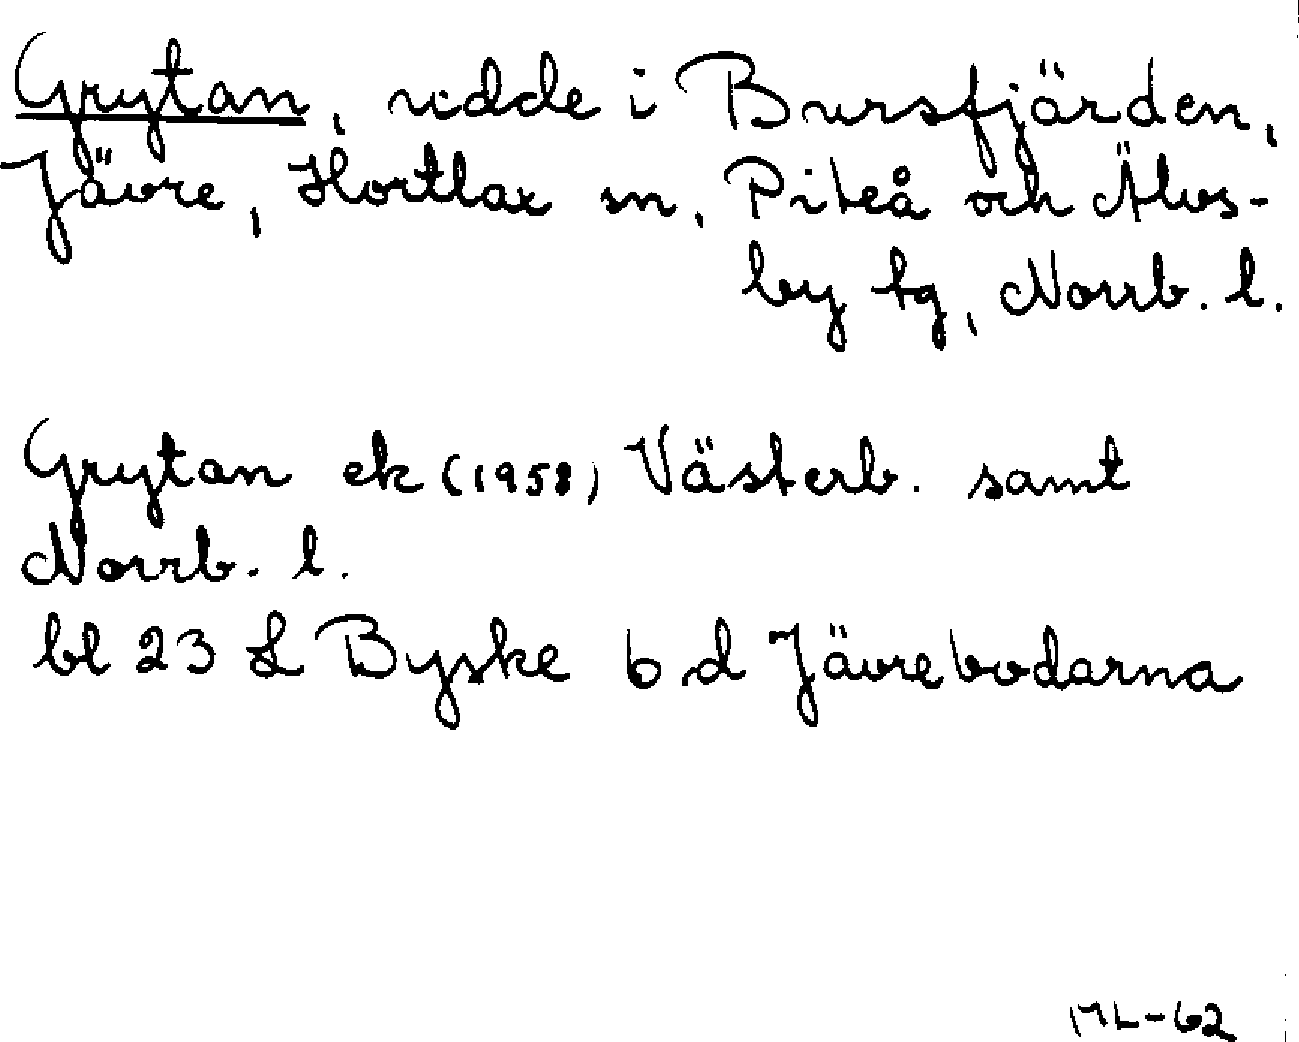 Grytan, redde i Bursfjärden,
Jävre, Hortlax sn, Piteå och Älvs-
by tg, Norrb. l.
Grytan ek (1958) Västerb. samt
Norrb. l.
bl 23 L Byske 6 d Jävrebodarna
ML-62